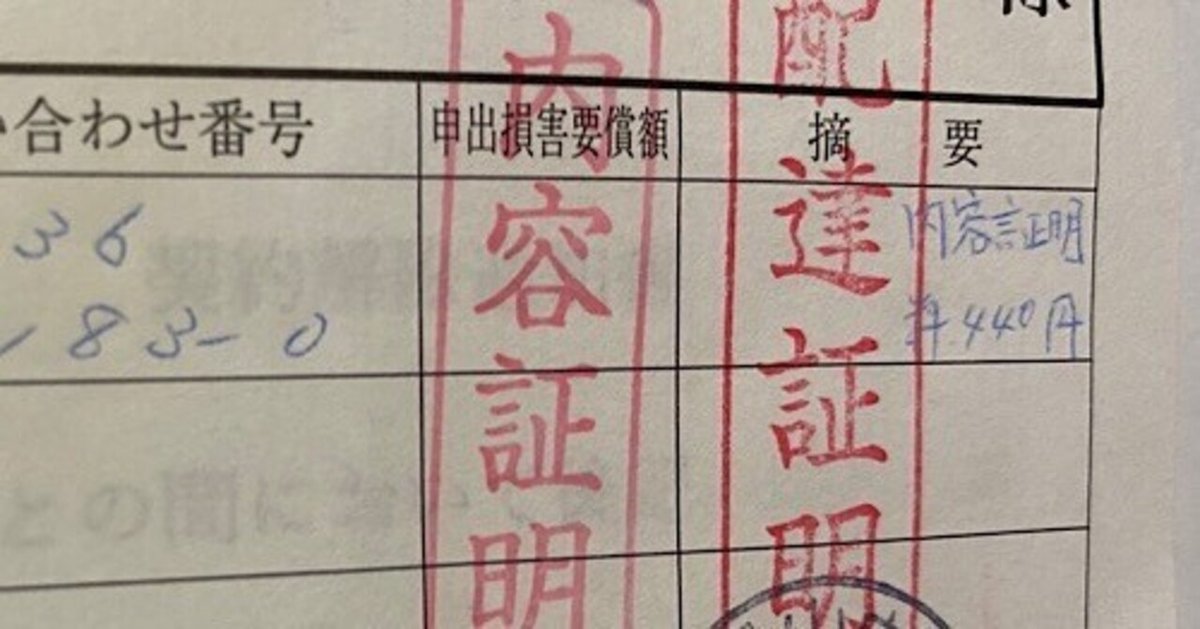 様
い合わせ番号
申出損害要償額
摘要
36
183-0
内容証明
料440円
内容証明
配達証明
との間に